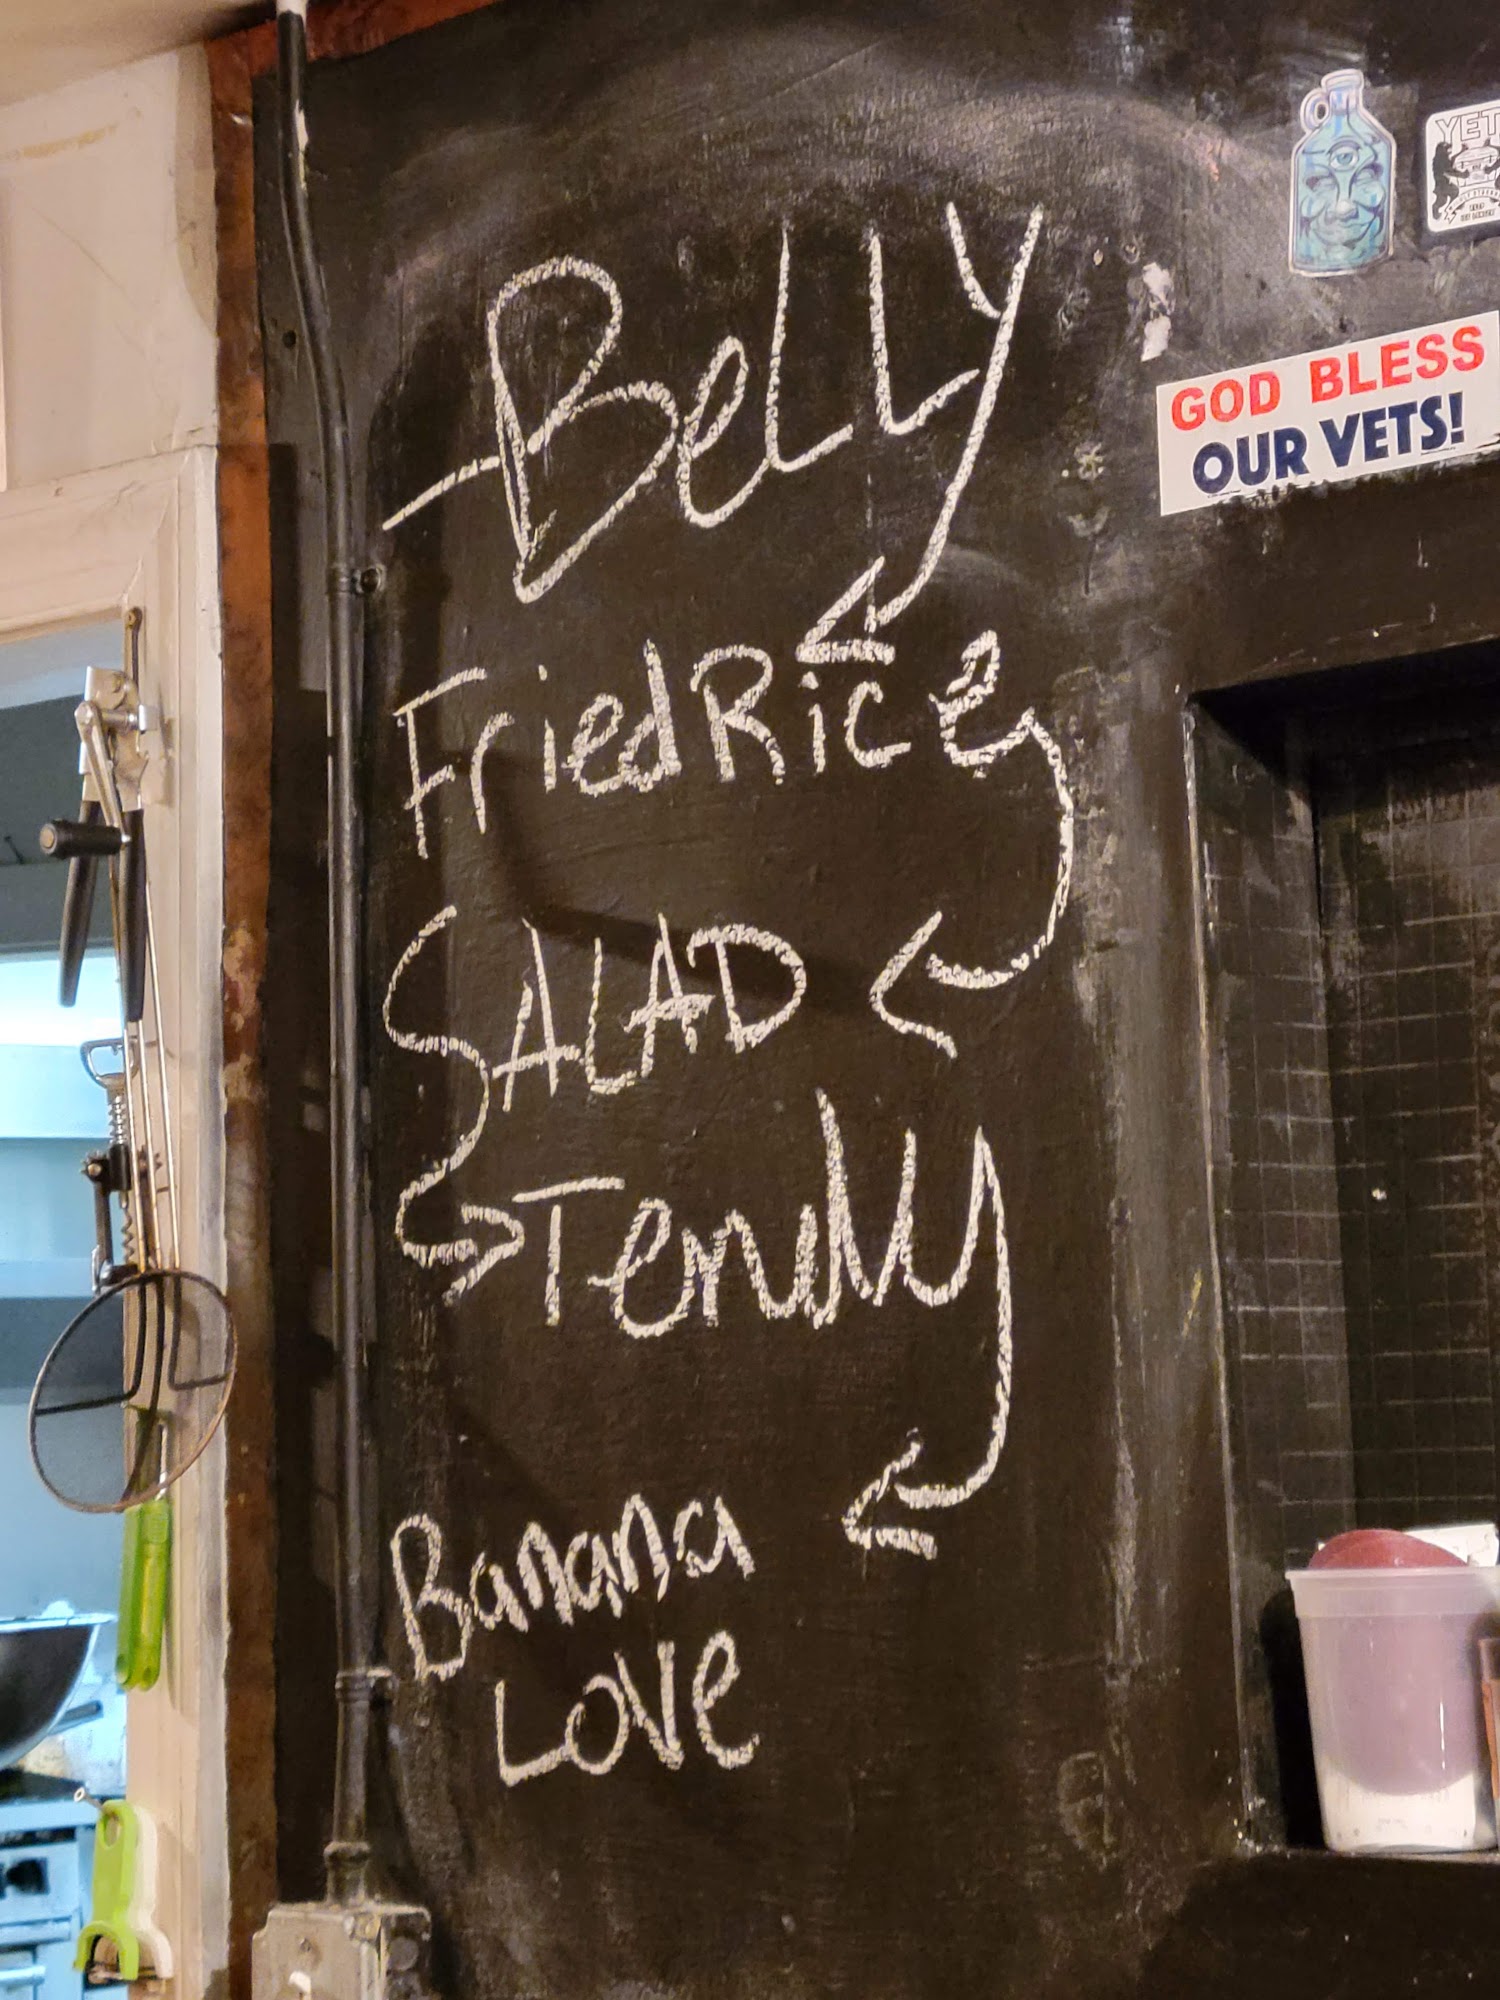 Belly
Fried Rice
SALAD
Tendy
Banana
Love
YET
GOD BLESS
OUR VETS!